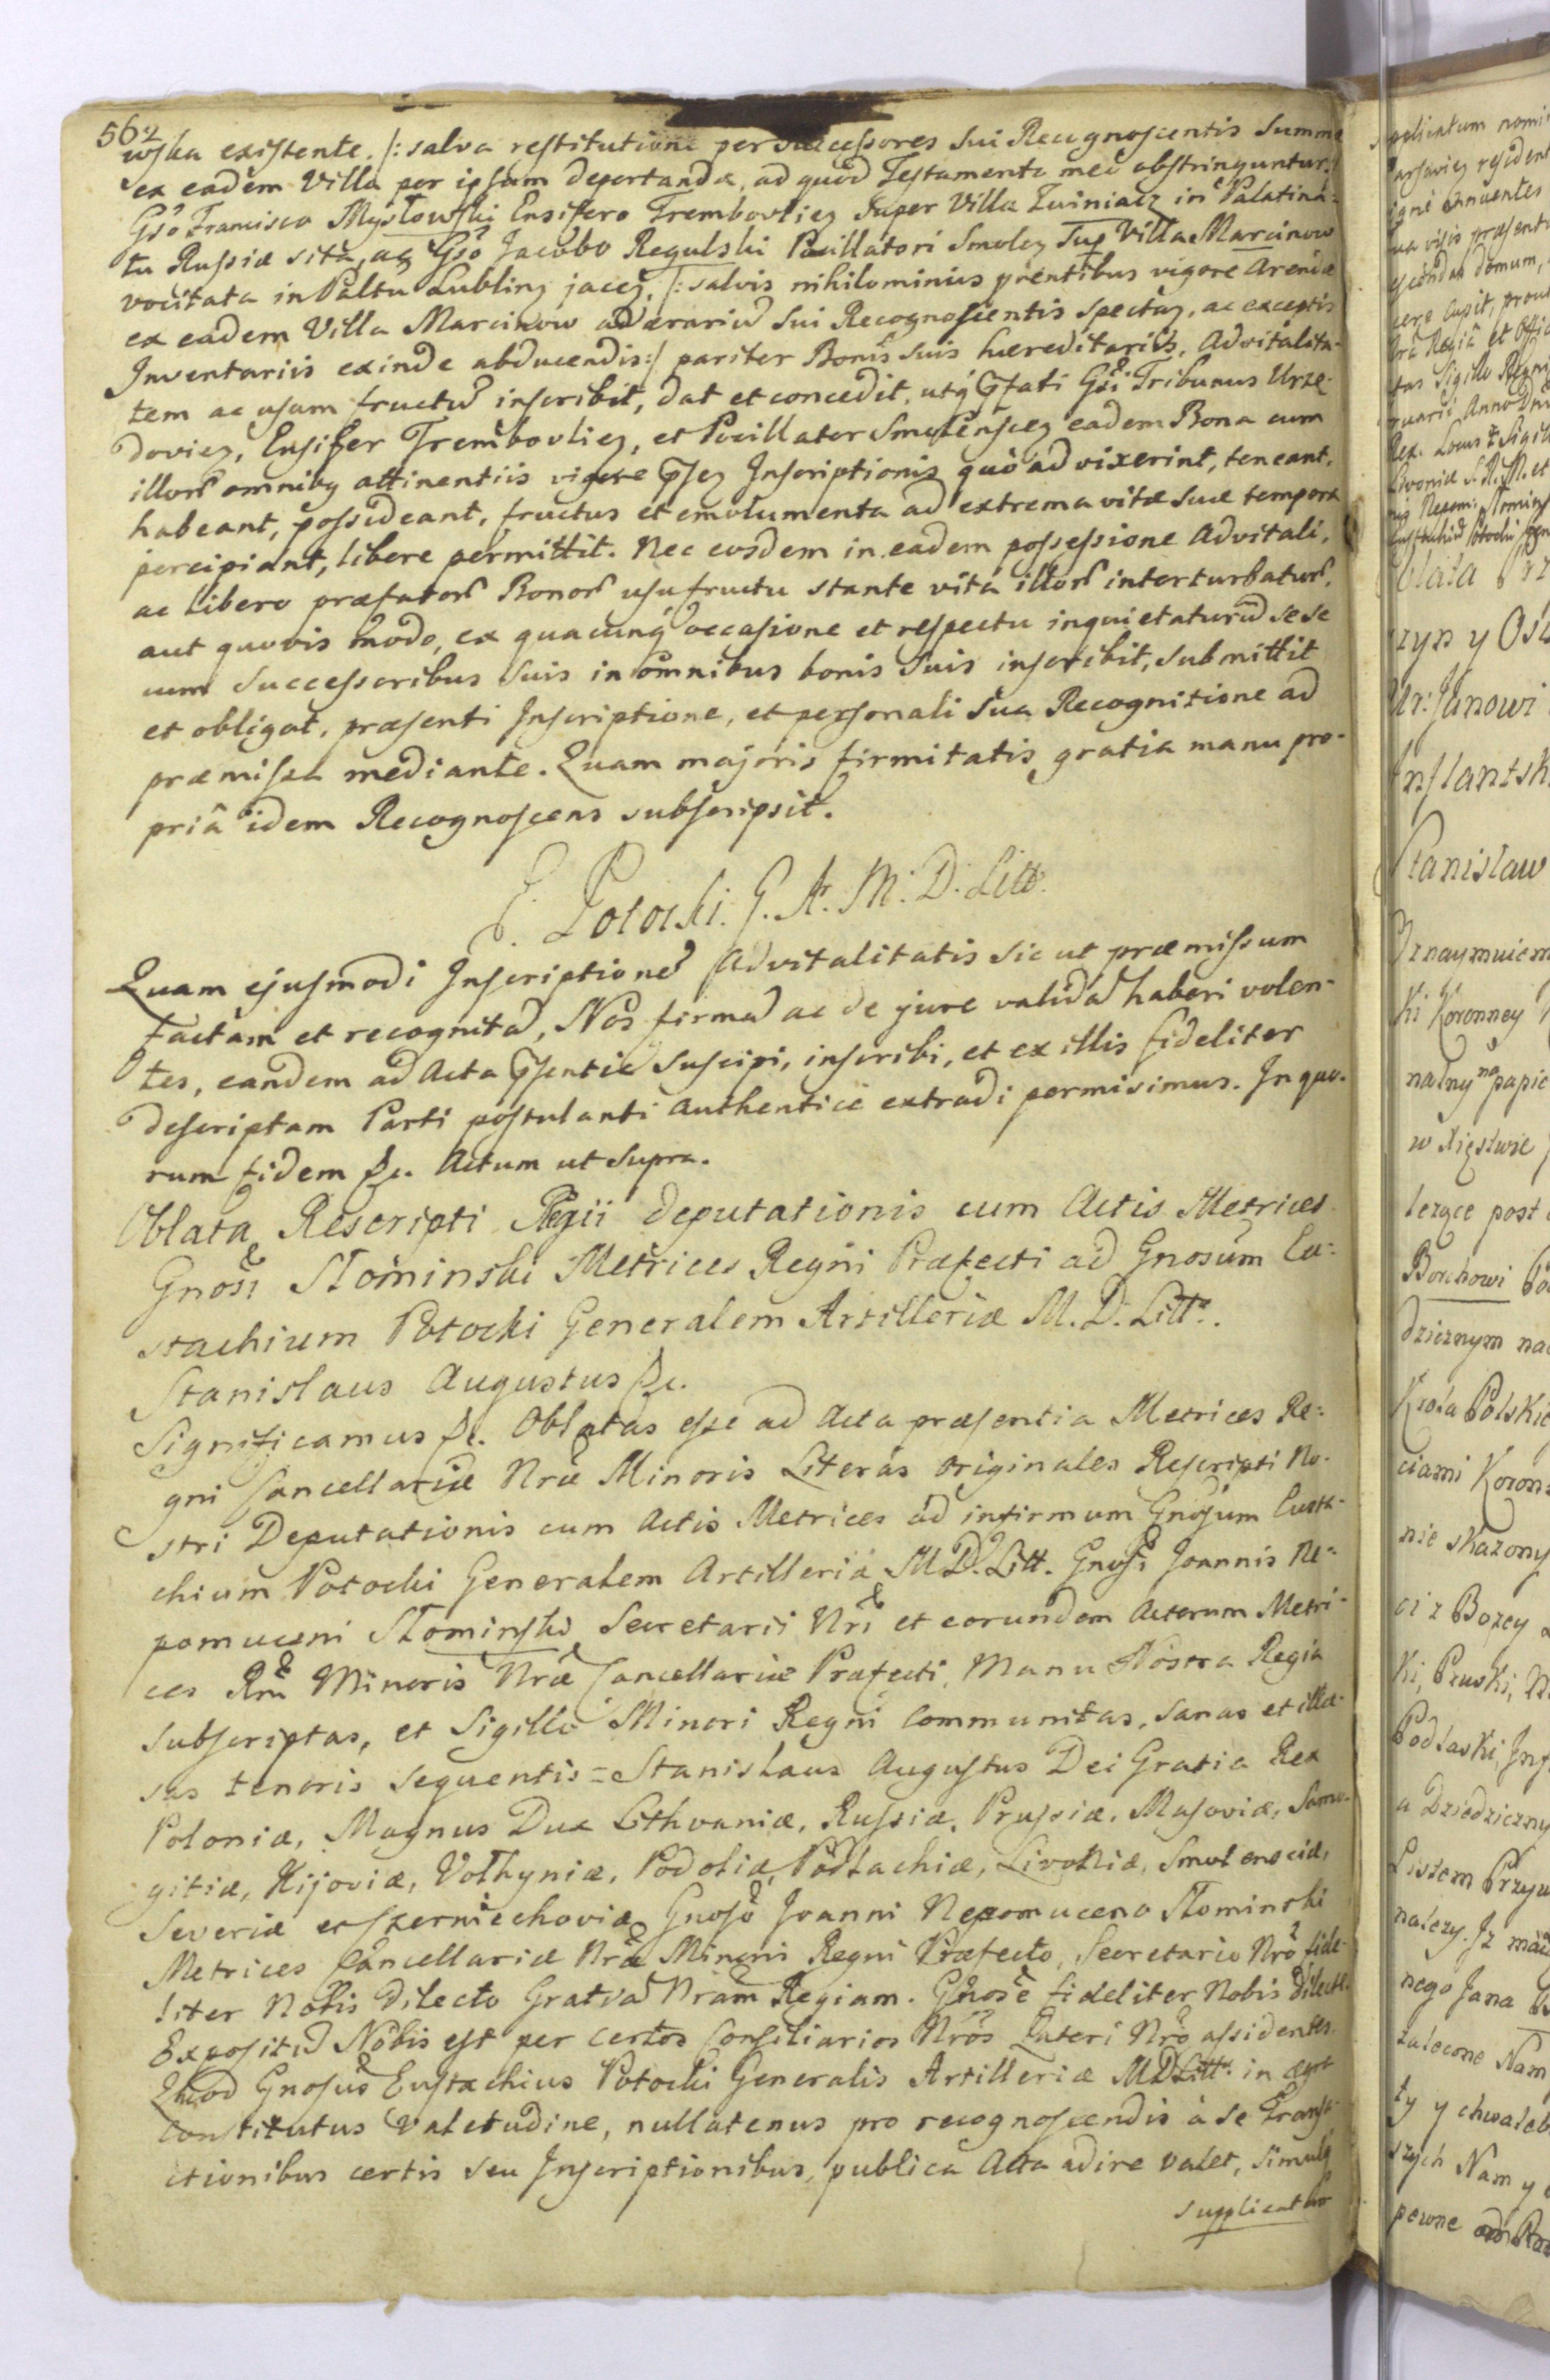 562
wska existente. /:salva restitutione per successores sui Recognoscentis Summæ
ex eadem Villa per ipsum deportandæ, ad quod Testamento meo obstringuntur:/
Gso Francisco Mysłowski Ensifero Trembovlięz Super Villa Zwiniacz in Palatina-
tu Russiæ sita, ac Gso Jacobo Regulski Pocillatori Smolęz Sup Villa Marcinow
vocitata in Paltu Lublinz jacęz, /:salvis nihilominius prentibus vigore Arendæ
ex eadem Villa Marcinow ad ærariu sui Recognoscentis spectaz, ac exceptis
Inventariis exinde abducendis:/ pariter Bonis suis hæreditariis, Advitalita-
tem ac usum fructu inscribit, dat et concedit, utq pfati Gsi Tribunus Urze-
dovięz, Ensifer Trembovlięz, et Pocillator Smolenscęz eadem Bona cum
illor omnibq attinentiis vigore psęz Inscriptionis quo ad vixerint, teneant,
habeant, possideant, fructus et emolumenta ad extrema vitæ suæ tempora
percipiant, libere permittit. Nec eosdem in eadem possessione Advitali,
ac libero præfator Bonor usufructu stante vita illor interturbatur,
aut quovis modo, ex quacunq occasione et respectu inquietaturu sese
cum Successoribus suis in omnibus bonis suis inscribit, submittit
et obligat, præsenti Inscriptione, et personali sua Recognitione ad
præmissa mediante. Quam majoris firmitatis gratia manu pro-
priâ idem Recognoscens subscripsit.
E. Potocki. G. Ar. M. D. Litt.
Quam ejusmodi Inscriptione Advitalitatis sic ut præmissum
factam et recognita, Nos firma ac de jure valida haberi volen-
tes, eandem ad Acta psentia suscipi, inscribi, et ex illis fideliter
descriptam Parti postulanti Authentice extradi permisimus. In quo-
rum fidem &c. Actum ut Supra.
Oblata Rescripti Regii deputationis cum Actis Metrices
Gnosi Słominski Metrices Regni Præfecti ad Gnosum Eu-
stachium Potocki Generalem Artilleriæ M. D. Litt.
Stanislaus Augustus &c.
Significamus &c. Oblatas esse ad Acta præsentia Metrices Re-
gni Cancellariæ Nræ Minoris Literas originales Rescripti No-
stri Deputationis cum Actis Metrices ad infirmum Gnosum Eusta-
chium Potocki Generalem Artilleriæ M D. Litt. Gnosi Joannis Ne-
pomuceni Słominski Secretarii Nri et eorundem Actorum Metri-
ces Rni Minoris Nræ Cancellariæ Præfecti, Manu Nostra Regia
subscriptas, et Sigillo Minori Regni communitas, sanas et illæ-
sas tenoris sequentis = Stanislaus Augustus Dei Gratia Rex
Poloniæ, Magnus Dux Lithvaniæ, Russiæ, Prussiæ, Masoviæ, Samo-
gitiæ, Kijoviæ, Volhyniæ, Podoliæ, Podlachiæ, Livoniæ, Smolensciæ,
Severiæ et Czerniechoviæ Gnoso Joanni Nepomuceno Słominski
Metrices Cancellariæ Nræ Minoris Regni Præfecto, Secretario Nro fide-
liter Nobis Dilecto Gratia Nram Regiam. Gnose fideliter Nobis Dilecte.
Expositu Nobis est per certos Consiliarios Nros Lateri Nro assidentes.
Quod Gnosus Eustachius Potocki Generalis Artilleriæ MDLitt. in ægra
constitutus valetudine, nullatenus pro recognoscendis à se Transa-
ctionibus certis seu Inscriptionibus, publica Acta adire valet, simulq
supplicatum